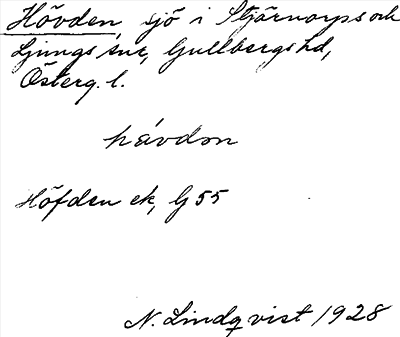 Hövden, sjö i Stjärnorps och
Ljungs snr, Gullbergs hd,
Österg. l.
hǻvdən
Höfden ek, G 55
N. Lindqvist 1928